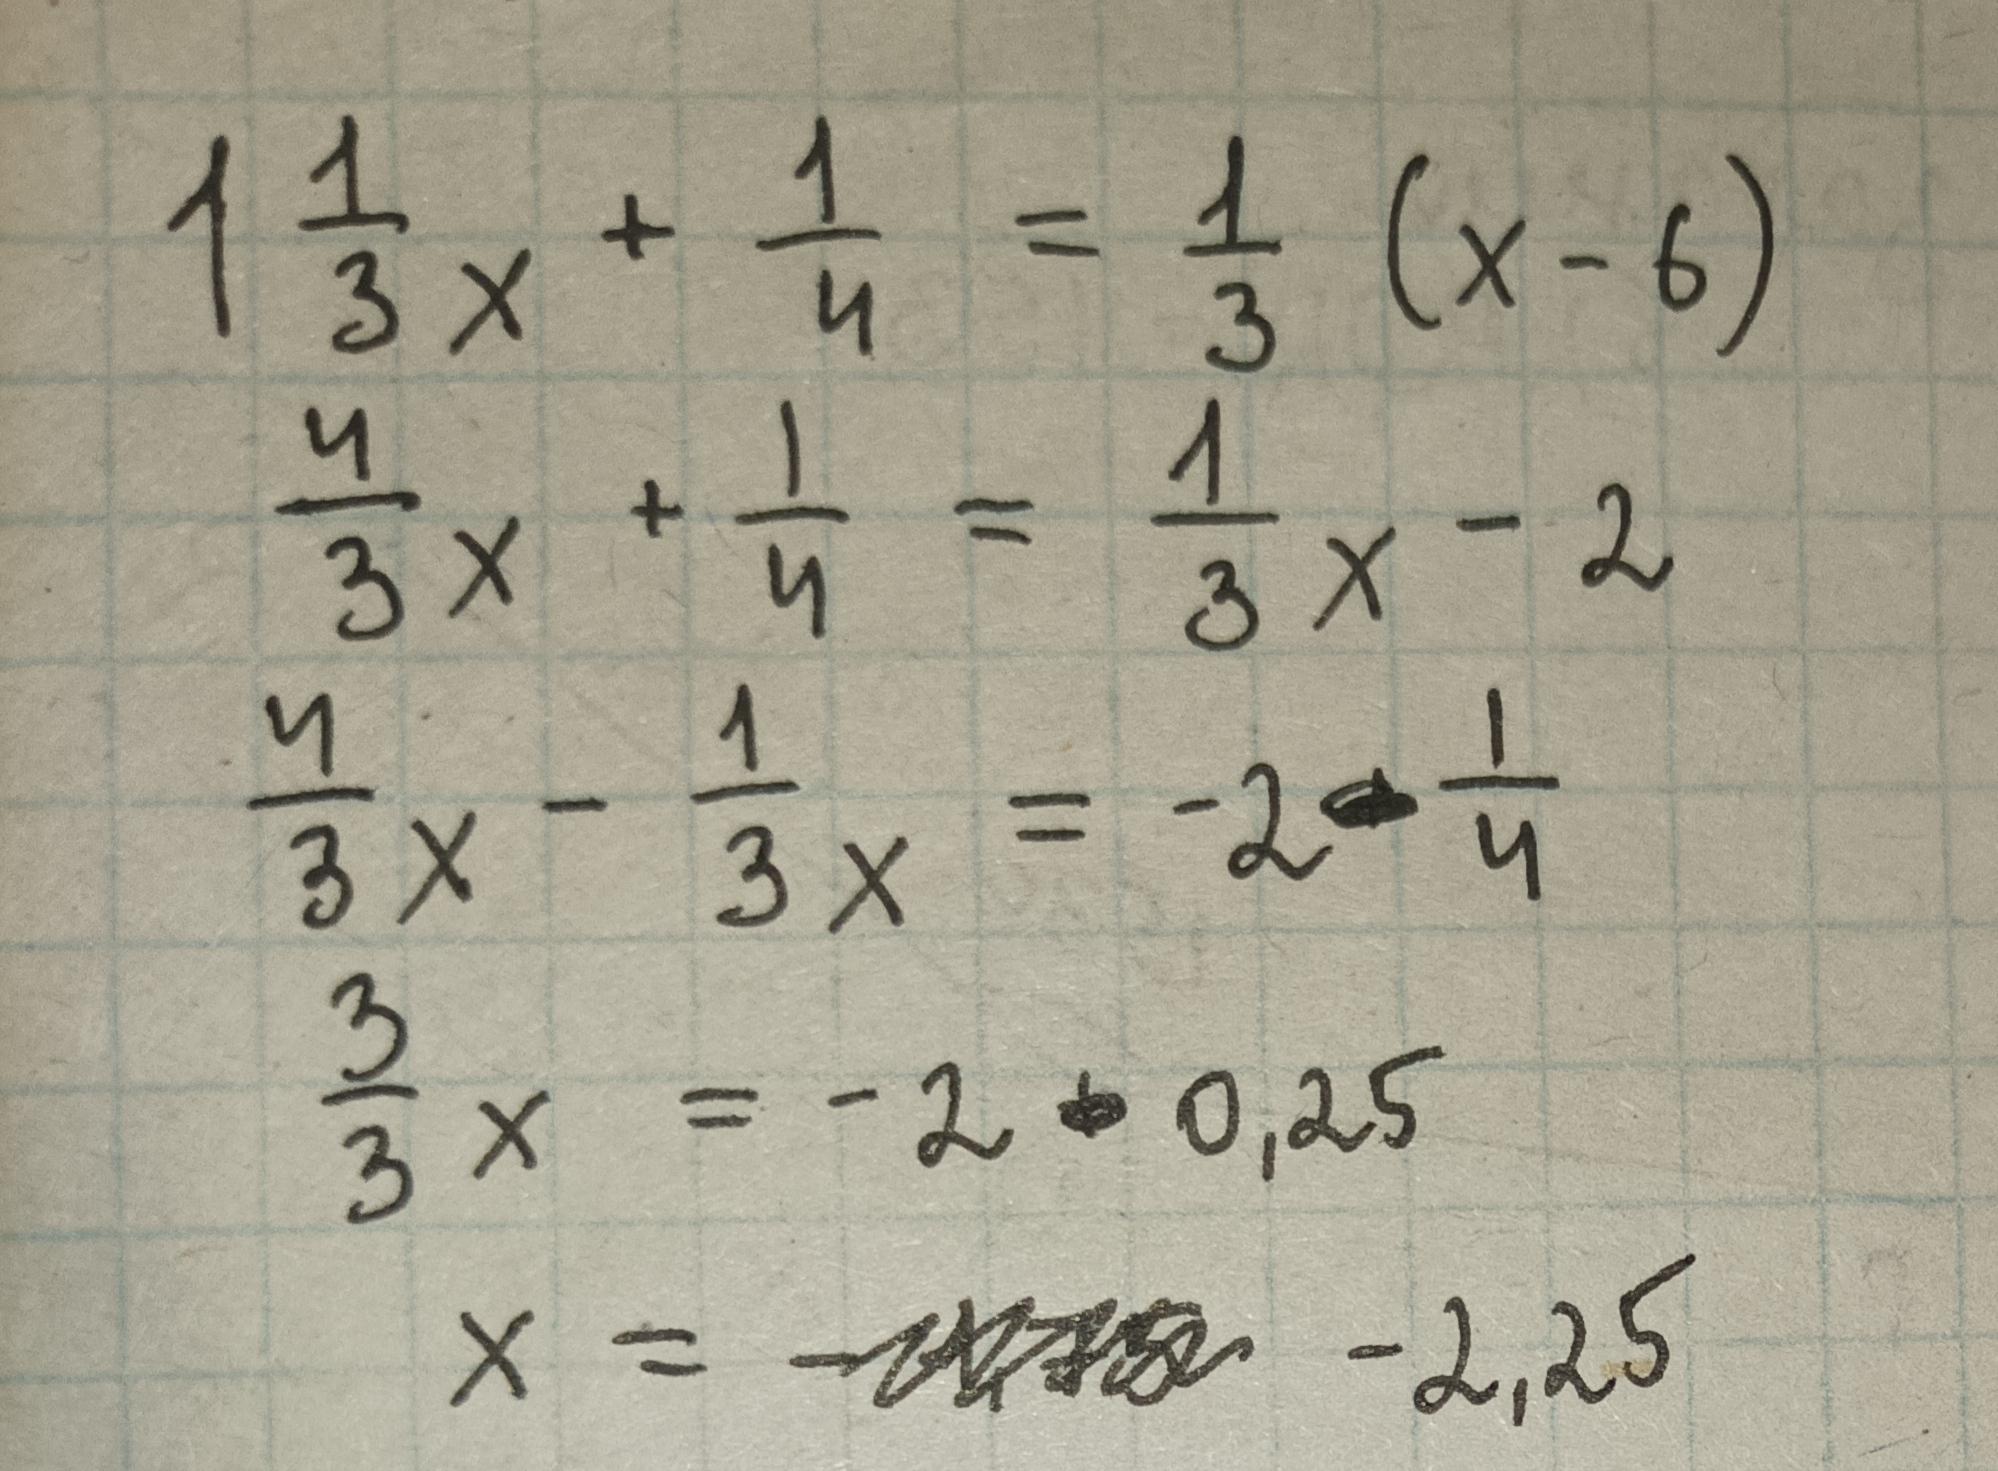 1 1/3 x + 1/4 = 1/3 (x - 6)
4/3 x + 1/4 = 1/3 x - 2
4/3 x - 1/3 x = -2 - 1/4
3/3 x = -2 - 0,25
x = -2,25